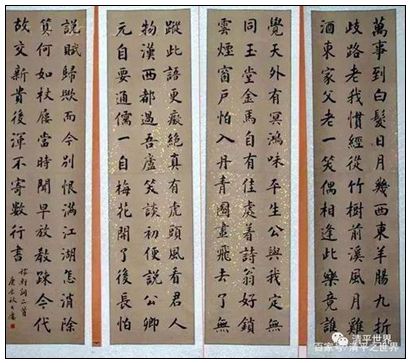 萬事到白髮日月幾西東羊腸九折
歧路老我慣經從竹樹前溪風月雞
酒東家父老一笑偶相逢此樂竟誰
覺天外有冥鴻味平生公與我定無
同玉堂金馬自有佳處著詩翁好鎖
雲煙窗戶怕入丹青圖畫飛去了無
蹤此語更癡絕真有虎頭風看君人
物漢西都過吾廬笑談初便說公卿
元自要通儒一自梅花開了後長怕
說賦歸歟而今別恨滿江湖怎消除
算何如杖屨當時聞早放教疎今代
故交新貴後渾不寄數行書
稼軒詞二首
清平世界
百家号/清平之世界